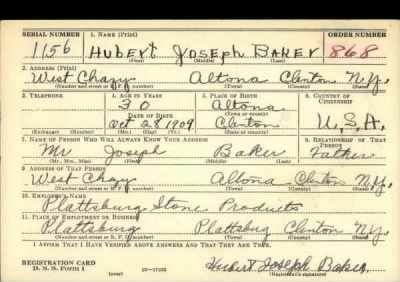 SERIAL NUMBER 1. NAME (Print) ORDER NUMBER
1156 HUBERT JOSEPH BAKER 868
(First) (Middle) (Last)
2. ADDRESS (Print)
West Chazy Altona Clinton N.Y.
(Number and street or R. F. D. number) (Town) (County) (State)
3. TELEPHONE 4. AGE IN YEARS 5. PLACE OF BIRTH 6. COUNTRY OF CITIZENSHIP
30 Altona
DATE OF BIRTH (Town or county)
Oct 28 1909 Clinton U.S.A.
(Exchange) (Number) (Mo.) (Day) (Yr.) (State or country)
7. NAME OF PERSON WHO WILL ALWAYS KNOW YOUR ADDRESS 8. RELATIONSHIP OF THAT PERSON
Mr Joseph Baker Father
(Mr., Mrs., Miss) (First) (Middle) (Last)
9. ADDRESS OF THAT PERSON
West Chazy Altona Clinton N.Y.
(Number and street or R. F. D. number) (Town) (County) (State)
10. EMPLOYER'S NAME
Plattsburg Stone Products
11. PLACE OF EMPLOYMENT OR BUSINESS
Plattsburg Plattsburg Clinton N.Y.
(Number and street or R. F. D. number) (Town) (County) (State)
I AFFIRM THAT I HAVE VERIFIED ABOVE ANSWERS AND THAT THEY ARE TRUE.
REGISTRATION CARD Hubert Joseph Baker
D. S. S. Form 1 (over) 16—17105 (Registrant's signature)